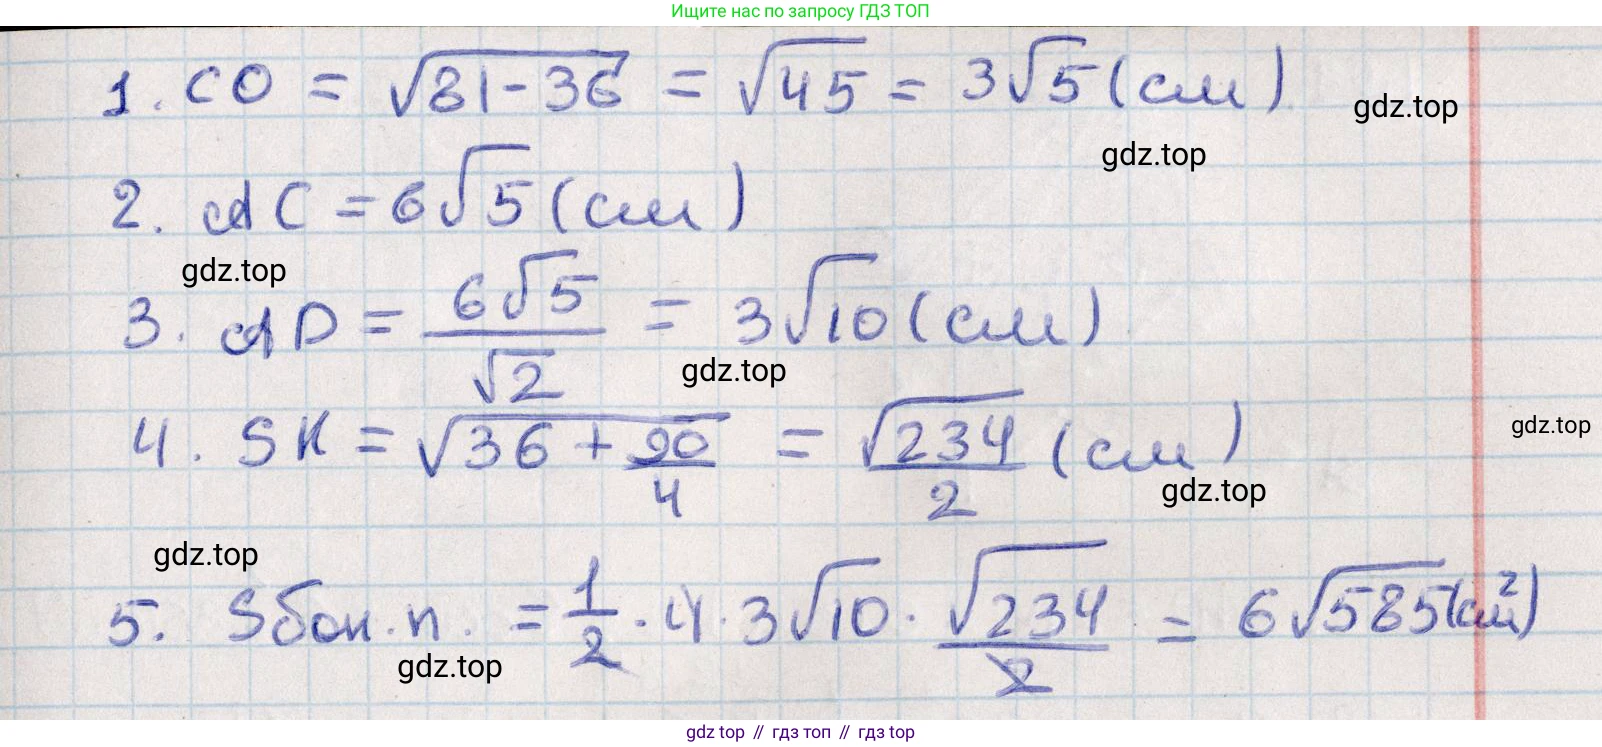 Ищите нас по запросу ГДЗ ТОП
1. CO = √(81-36) = √45 = 3√5 (см)
gdz.top
gdz.top
2. AC = 6√5 (см)
gdz.top
3. AD = 6√5/√2 = 3√10 (см)
gdz.top
4. SK = √(36 + 90/4) = √234/2 (см)
gdz.top
gdz.top
gdz.top
5. Sбок.п. = 1/2 · 4 · 3√10 · √234/2 = 6√585 (см²)
gdz.top
gdz top // гдз топ // gdz.top